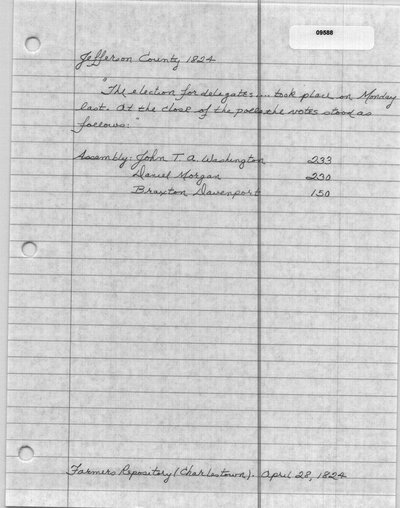 09588
Jefferson County 1824
"The election for delegates.... took place on Monday
last. At the close of the polls the votes stood as
follows:"
Assembly: John T. A. Washington 233
Daniel Morgan 230
Braxton Davenport 150
Farmers Repository (Charlestown). April 28, 1824